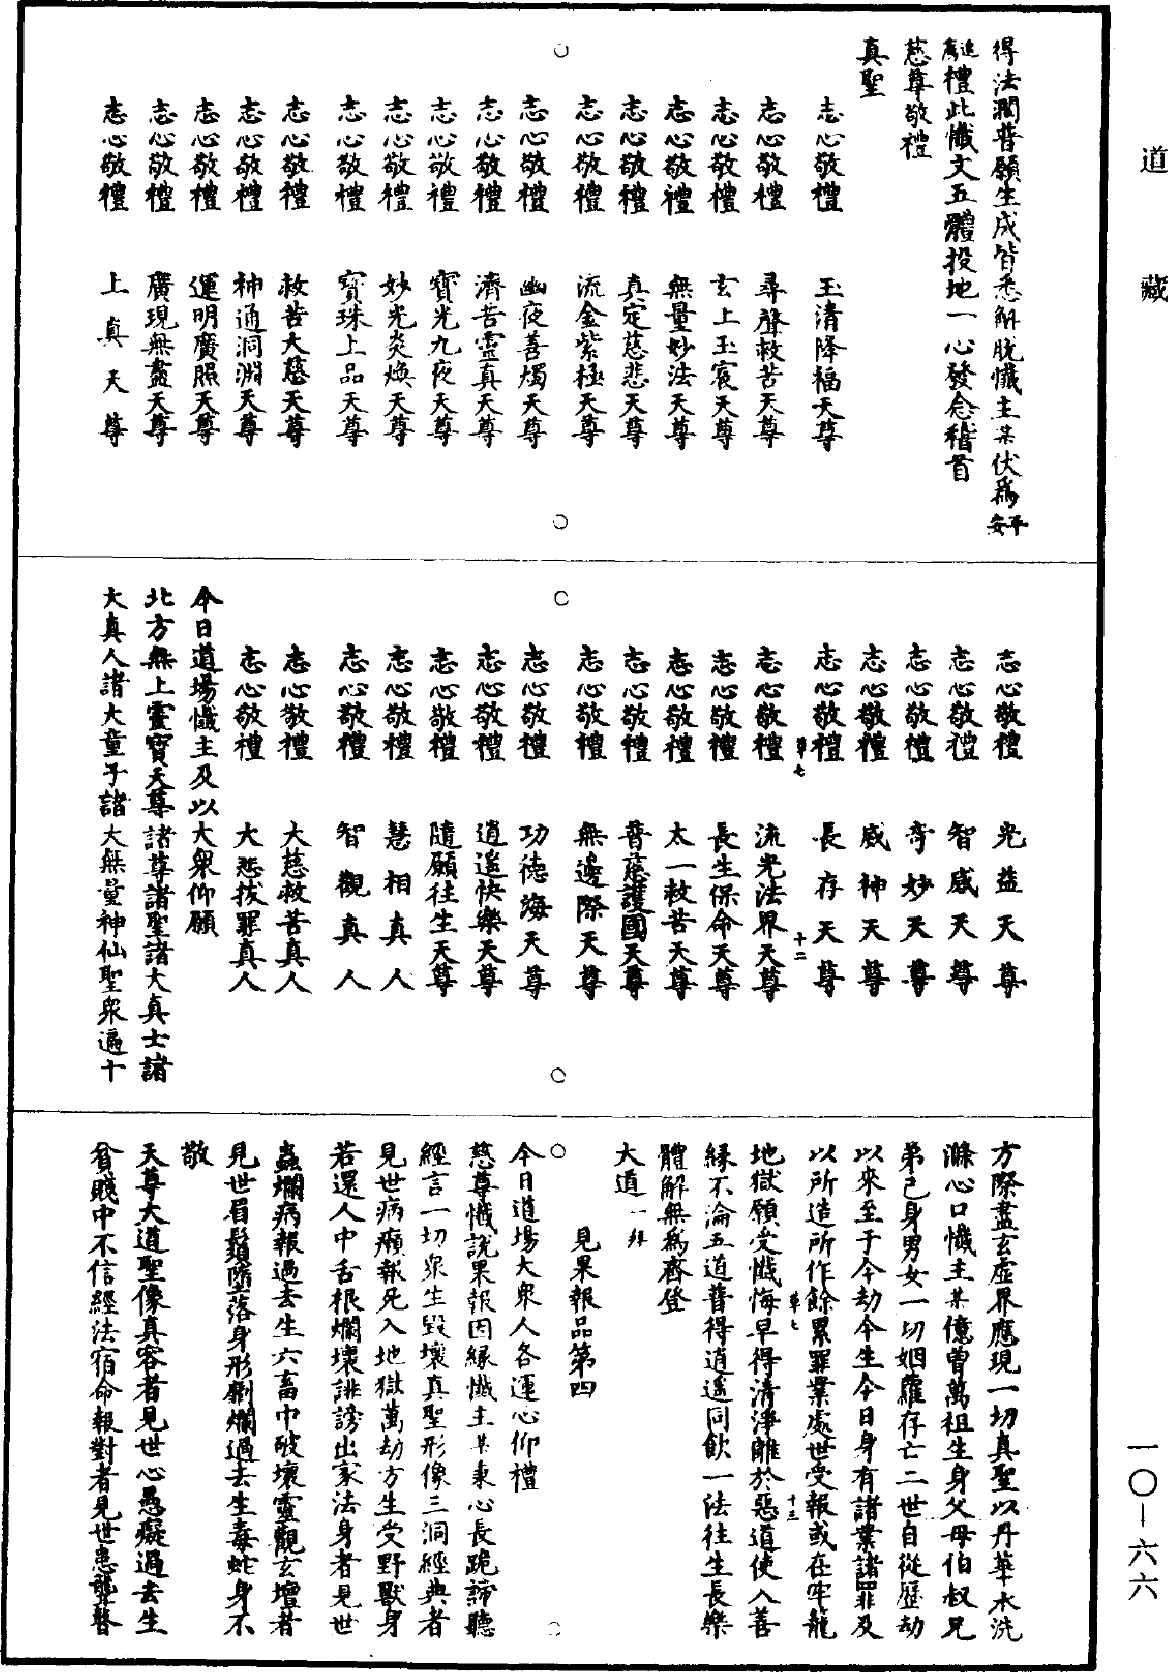 道藏
得法潤普願生成皆悉解脫懺主某伏為平安
追薦禮此懺文五體投地一心發念稽首
慈尊敬禮
真聖
志心敬禮　玉清降福天尊
志心敬禮　尋聲救苦天尊
志心敬禮　玄上玉宸天尊
志心敬禮　無量妙法天尊
志心敬禮　真定慈悲天尊
志心敬禮　流金紫極天尊
志心敬禮　幽夜善燭天尊
志心敬禮　濟苦靈真天尊
志心敬禮　寶光九夜天尊
志心敬禮　妙光炎煥天尊
志心敬禮　寶珠上品天尊
志心敬禮　救苦大慈天尊
志心敬禮　神通洞淵天尊
志心敬禮　運明廣照天尊
志心敬禮　廣現無盡天尊
志心敬禮　上真天尊
志心敬禮　光益天尊
志心敬禮　智威天尊
志心敬禮　奇妙天尊
志心敬禮　威神天尊
志心敬禮　長存天尊
草七　十二
志心敬禮　流光法界天尊
志心敬禮　長生保命天尊
志心敬禮　太一救苦天尊
志心敬禮　普慈護國天尊
志心敬禮　無邊際天尊
志心敬禮　功德海天尊
志心敬禮　逍遙快樂天尊
志心敬禮　隨願往生天尊
志心敬禮　慧相真人
志心敬禮　智觀真人
志心敬禮　大慈救苦真人
志心敬禮　大悲拔罪真人
今日道場懺主及以大眾仰願
北方無上靈寶天尊諸尊諸聖諸大真士諸
大真人諸大童子諸大無量神仙聖眾遍十
方際盡玄虛界應現一切真聖以丹華水洗
滌心口懺主某億曾萬祖生身父母伯叔兄
弟己身男女一切姻蘿存亡二世自從歷劫
以來至于今劫今生今日身有諸業諸罪及
以所造所作餘累罪業處世受報或在牢籠
草七　十三
地獄願受懺悔早得清淨離於惡道使入善
緣不淪五道普得逍遙同飲一法往生長樂
體解無為齊登
大道一拜
見果報品第四
今日道場大眾人各運心仰禮
慈尊懺說果報因緣懺主某秉心長跪諦聽
經言一切眾生毀壞真聖形像三洞經典者
見世病癩報死入地獄萬劫方生受野獸身
若還人中舌根爛壞誹謗出家法身者見世
蟲爛病報過去生六畜中破壞靈觀玄壇者
見世眉鬚墮落身形劇爛過去生毒蛇身不
敬
天尊大道聖像真容者見世心愚癡過去生
貧賤中不信經法宿命報對者見世患聾瞽
一〇—六六